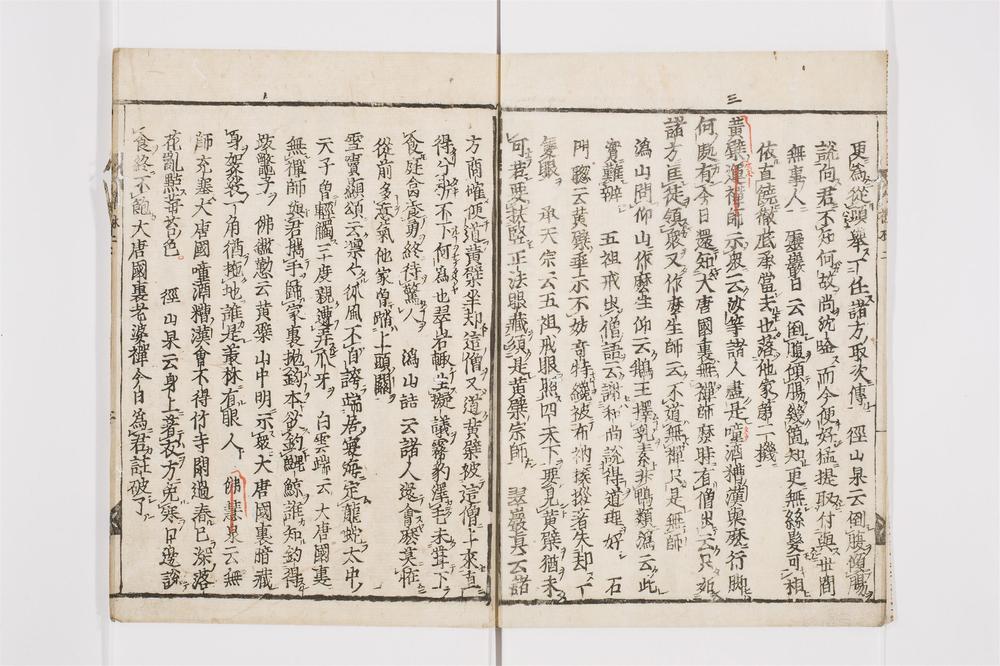 三
更為從頭舉一任諸方取次傳 徑山杲云倒腹傾腸
說向君不知何故尚沈吟 而今便好猛提取付與世間
無事人 靈巖日云倒腹傾腸幾箇知更無絲髮可相
依直饒徹底承當去也落他家第二機
黃檗運禪師示衆云汝等諸人盡是噇酒糟漢與麼行脚
何處有今日還知大唐國裏無禪師麼時有僧出云只如
諸方匡徒領衆又作麼生師云不道無禪只是無師
溈山問仰山作麼生仰云鵝王擇乳素非鴨類溈云此
實難辨 五祖戒出僧語云謝和尚說得道理好 石
門聰云黃檗垂示不妨奇特纔被布衲拶著失却一
隻眼 承天宗云五祖戒眼照四天下要見黃檗猶未
可若要扶竪正法眼藏須是黃檗宗師 翠巖真云諸
方商確便道黃檗坐却這僧又道黃檗被這僧上來直
得分疎不下何為也翠岩輙生擬議霧豹澤毛未曾下
食庭禽養勇終待驚人 溈山喆云諸人還會麼莫恠
從前多意氣他家曾踏上頭關
雪竇顯頌云凜凜孤風不自誇端居寰海定龍蛇大中
天子曾輕觸三十度親遭弄爪牙 白雲端云大唐國裏
無禪師與君携手歸家裏拋鈎本欲釣鯤鯨誰知釣得
跛鼈子 佛鑑懃云黃檗山中明示衆大唐國裏暗藏
身袈裟一角猶拖地誰是叢林有眼人 佛慧泉云無
師充塞大唐國噇酒糟漢會不得竹寺閑過春已深落
花亂點莓苔色 徑山杲云身上著衣方免寒口邊說
食終不飽大唐國裏老婆禪今日為君註破了